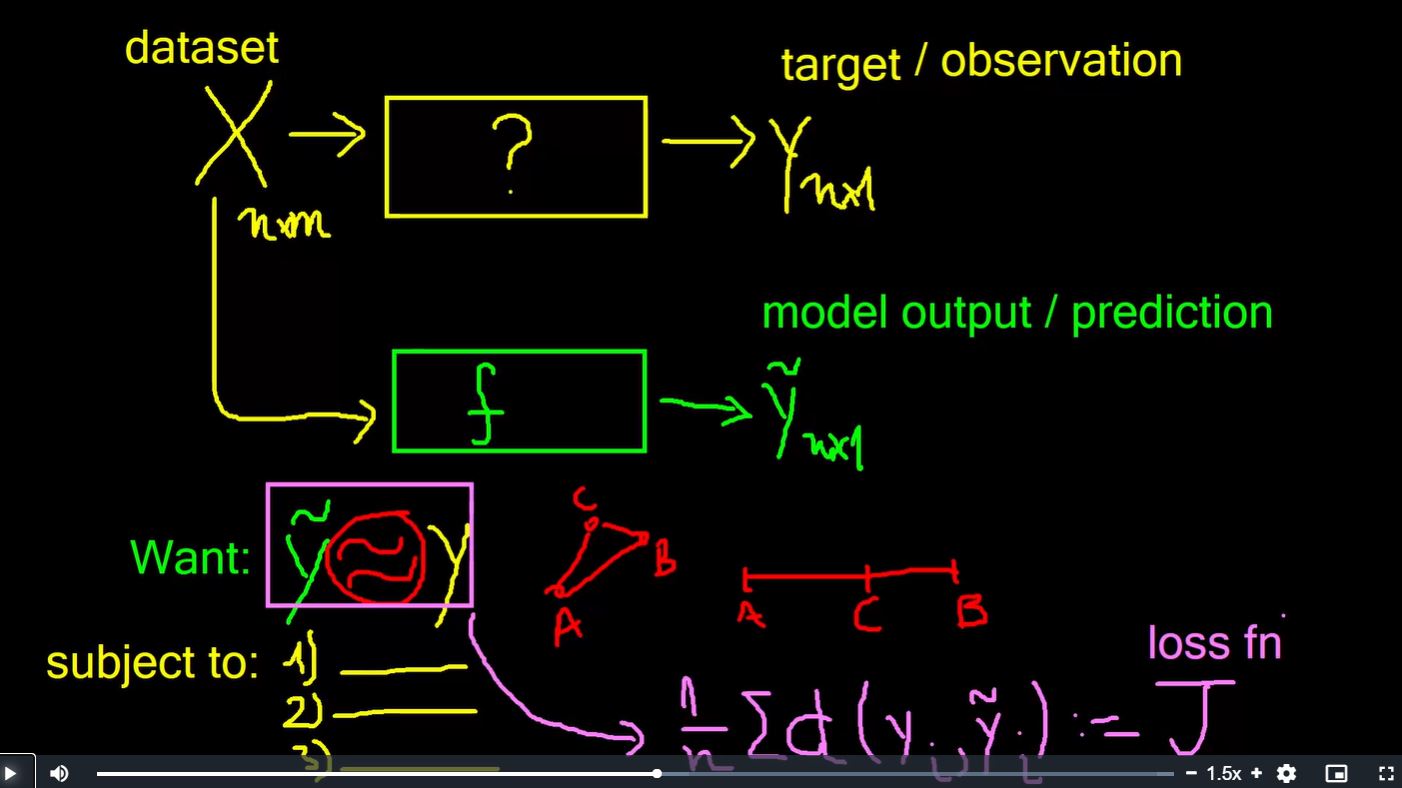 dataset
target / observation
X → ? → Y n×1
n×m
model output / prediction
f → ỹ n×1
Want: ỹ ≈ y
C
B
A
A C B
subject to: 1)
2)
3)
loss fn
1/n Σ d(y i, ỹ i) := J
1.5x